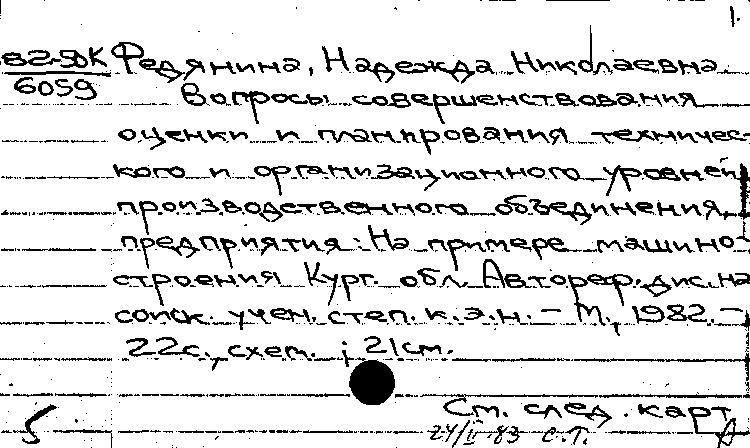 1.
82-50К Федянина, Надежда Николаевна
6059
Вопросы совершенствования
оценки и планирования техничес-
кого и организационного уровней
производственного объединения,
предприятия: На примере машино-
строения Кург. обл. Автореф. дис. на
соиск. учен. степ. к.э.н. – М., 1982. –
22с., схем. ; 21см.
См. след. карт.
5 24/II-83 с.т.